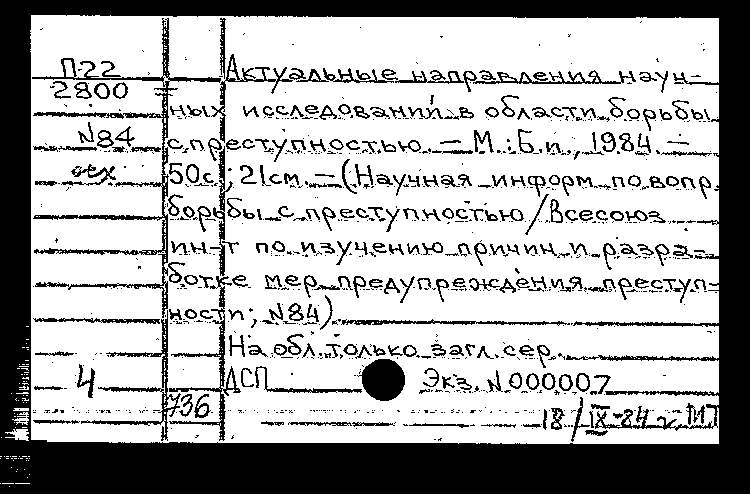 П-22 Актуальные направления науч-
2800 = ных исследований в области борьбы
N84 с преступностью. — М.: Б.и., 1984. —
50с.; 21см. — (Научная информ. по вопр.
борьбы с преступностью / Всесоюз.
ин-т по изучению причин и разра-
ботке мер предупреждения преступ-
ности; N84)
На обл. только загл. сер.
4 ДСП Экз. N 000007
736 18/IX-84 г. МТ